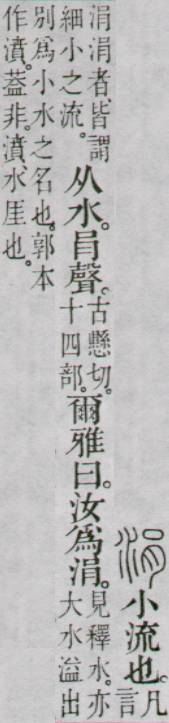 涓小流也。凡言
涓涓者、皆謂細小之流。从水。肙聲。古懸切。十四部。爾雅曰。汝爲涓。見釋水。亦大水溢出
別爲小水之名也。郭本作濆。葢非。濆、水厓也。